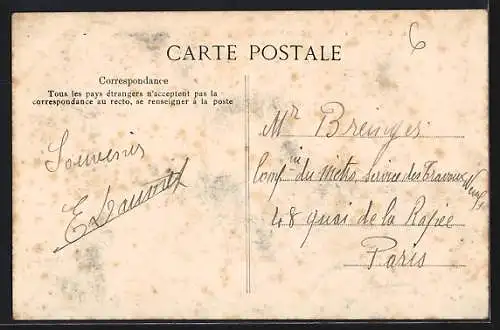 6
CARTE POSTALE
Correspondance
Tous les pays étrangers n'acceptent pas la
correspondance au recto, se renseigner à la poste
Souvenir
Mr
Comp.nie du Métro, Service des Travaux Neufs
48 quai de la Rapée
Paris